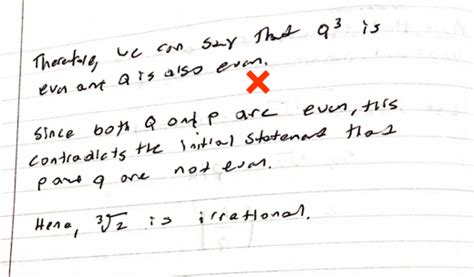 Therefore, we can say that q³ is
even and q is also even.
Since both q and p are even, this
contradicts the initial statement that
p and q are not even.
Hence, ³√2 is irrational.